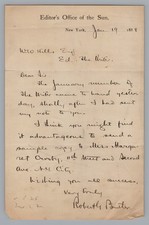 Editor's Office of the Sun,
New York, Jan. 19 188
Wm H Hills Esq
Ed. The Writer
Dear Sir
The January number of
The Writer came to hand yester
day, shortly after I had sent
my note to you.
I think you might find
it advantageous to send a
sample copy to Miss Margar
et Crosby, Street and Second
Ave. N.Y.C.
Wishing you all success,
Very truly
Robert